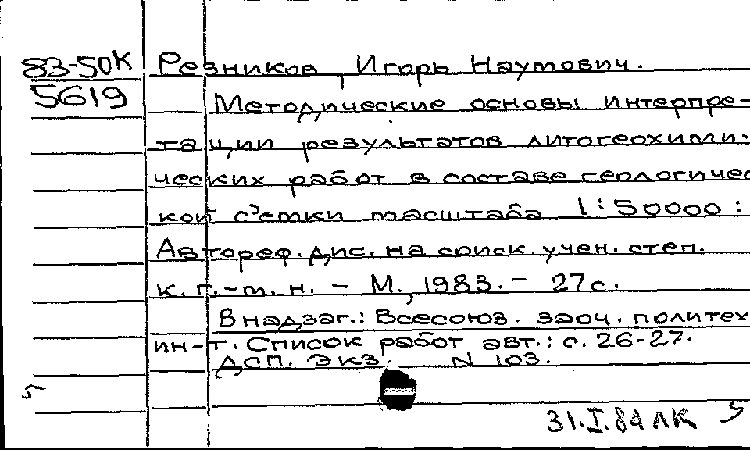 83-50К Резников, Игорь Наумович.
5619 Методические основы интерпре-
тации результатов литогеохими-
ческих работ в составе геологичес-
кой с'емки масштаба 1:50000:
Автореф. дис. на соиск. учен. степ.
к. г.-м. н. - М., 1983. - 27с.
В надзаг.: Всесоюз. заоч. политех.
ин-т. Список работ авт.: с. 26-27.
ДСП. Экз. N 103.
5
31.I.84 ЛК 5